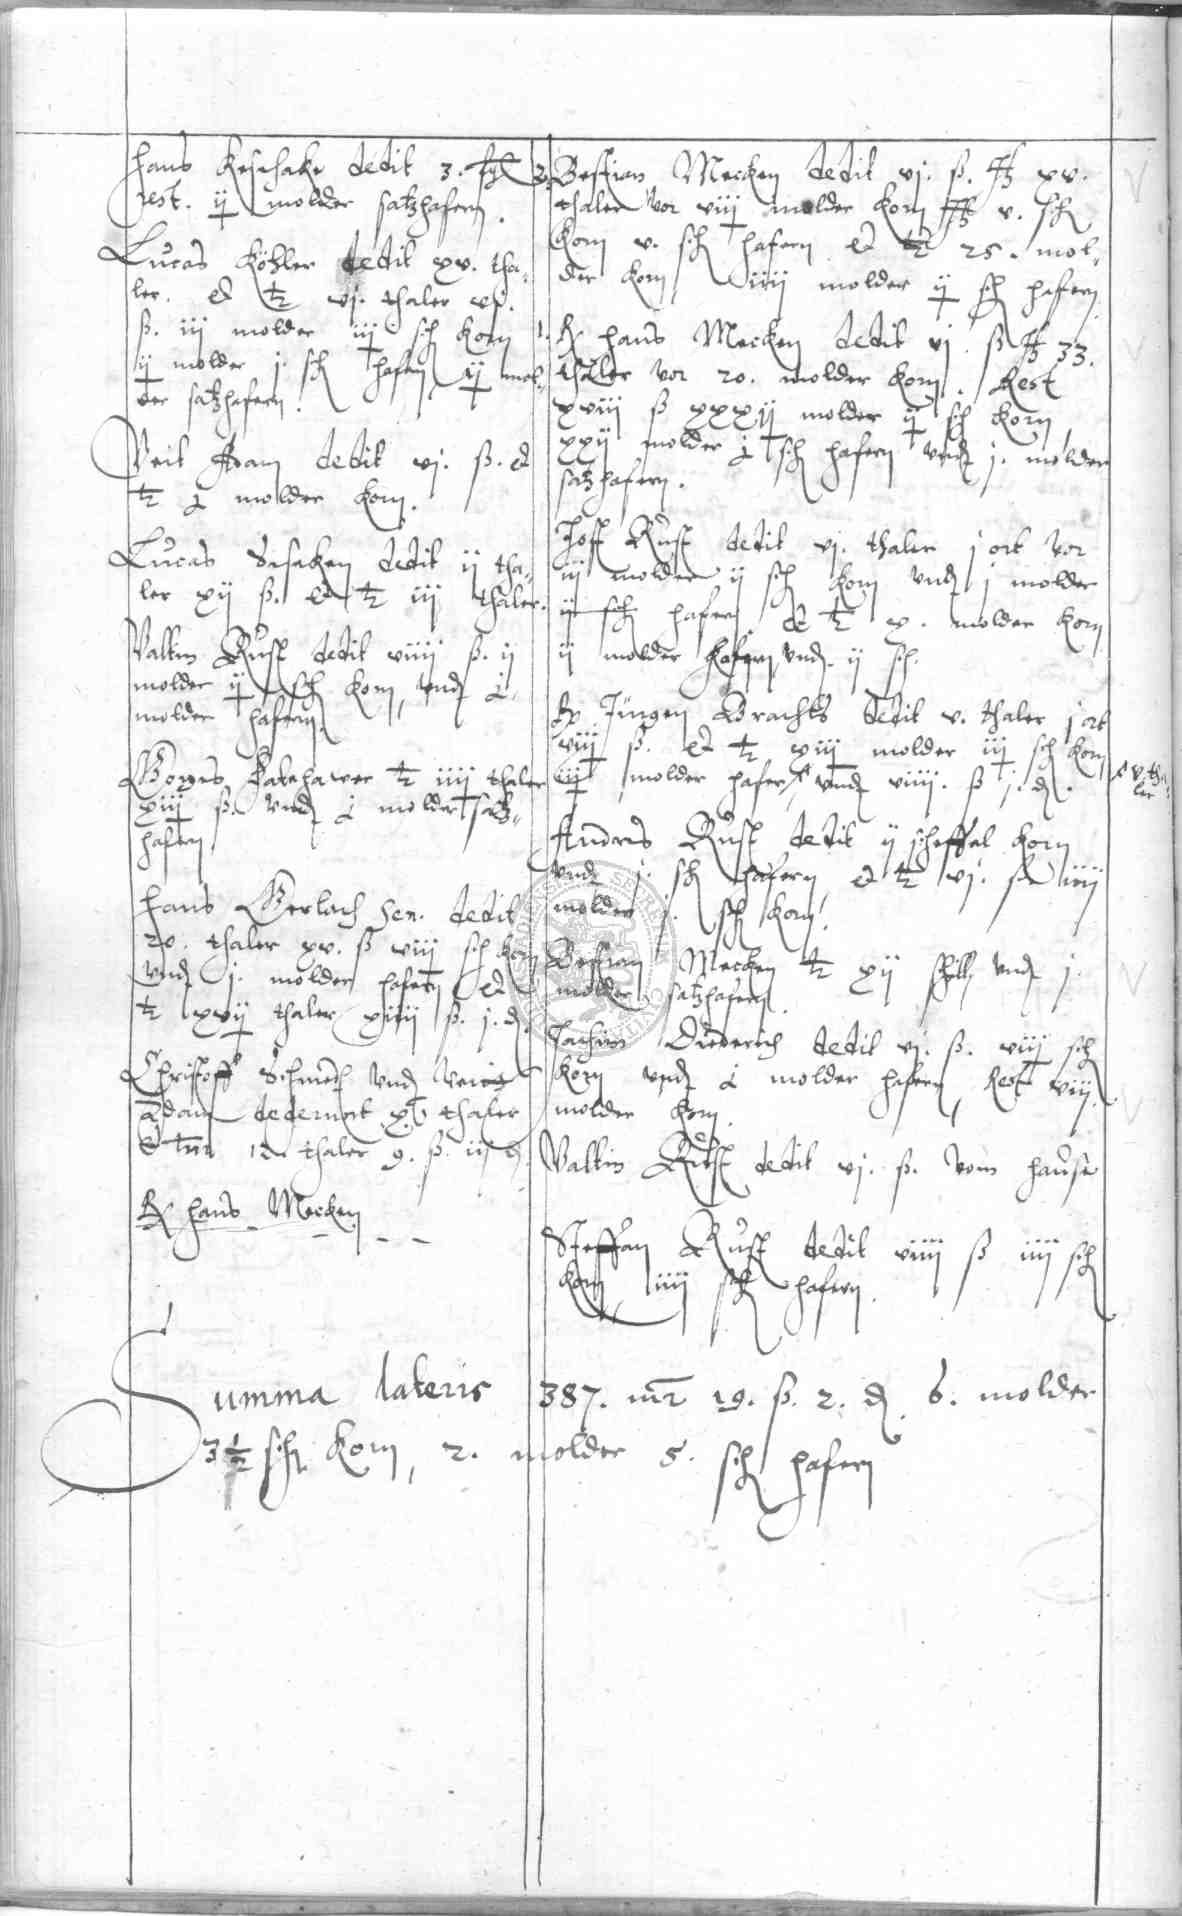 Hans Kesehake dedit 3. thl
rest. ij molder satzhafern.
Lucas Köhler dedit xv. tha-
ler. et tz vj. thaler vj.
ß. iij molder iij sch korn
ij molder j. sch hafern ij mol-
der satzhafern.
Veit Adam dedit vj. ß. et
tz j molder korn.
Lucas dedit ij tha-
ler xij ß. et tz iij thaler.
Valtin Rust dedit viiij ß. ij
molder ij sch korn, vnd j
molder hafern
tz iiij thaler
xiij ß. vnd j molder satz-
hafern
Hans Gerlach sen. dedit
20. thaler xv. ß viij sch korn
vnd j. molder hafern et
tz xvij thaler xiiij ß. j. d.
Christoff Schmedt vnd Veit
Adam dederunt xv thaler
et tnr 12 thaler 9. ß. iij d.
R Hans Mecken
Bestian Mecken dedit vj. ß. xv.
thaler vor viij molder korn v. sch
korn v. sch hafern et tz 25. mol-
der korn iiij molder ij sch hafern
R Hans Mecken dedit vj ß 33.
thaler vor 20. molder korn. Rest
xviij ß xxxij molder ij sch korn
xxij molder j sch hafern vnd j. molder
satzhafern.
Jost Rust dedit vj. thaler j ort vor
iij molder ij sch korn vnd j molder
ij sch hafern et tz x. molder korn
ij molder hafern vnd ij sch.
R Jürgen Brachts dedit v. thaler j ort
viij ß. et tz xiij molder iij sch korn
iij molder hafern vnd viiij. ß j. d.
v. tha-
ler
Andres Rust dedit ij scheffel korn
vnd j. sch hafern et tz vj. ß iiij
molder j. sch korn.
Bestian Mecken tz xij schill vnd j.
molder satzhafern
Jachim Diederich dedit vj. ß. viij sch
korn vnd j molder hafern, Rest viij
molder korn.
Valtin Rust dedit vj. ß. vom hause
Steffan Rust dedit viiij ß iiij sch
korn iiij sch hafern.
Summa lateris 387. mr 19. ß. 2. d. 6. molder
3 1/2 sch korn, 2. molder 5. sch hafern